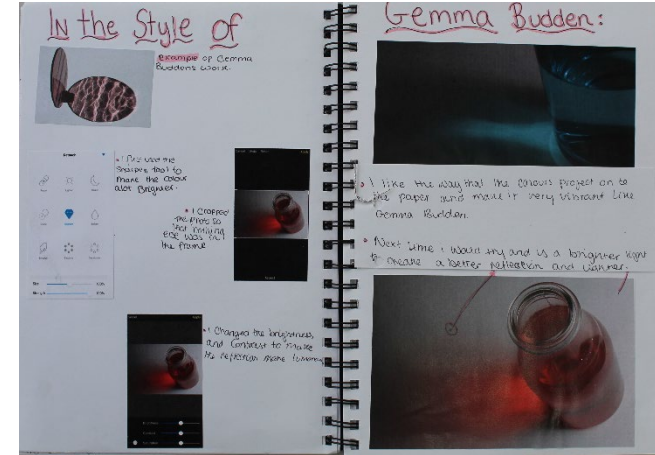 In the Style of
Gemma Budden:
example of Gemma
Buddens work.
• I first used the
tool to
make the colour
alot Brighter.
• I cropped
the photo so
that nothing
else was in
the frame
• I Changed the brightness,
and contrast to make
the reflection more
• I like the way that the colours project on to
the paper and make it very vibrant like
Gemma Budden.
• Next time I would try and us a brighter light
to create a better reflection and